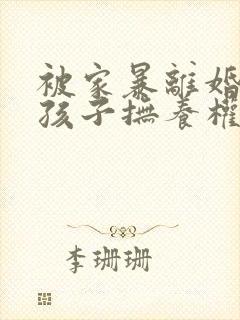 被家暴離婚
孩子撫養權
李珊珊